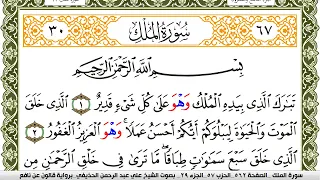 ٦٧ سُورَةُ المُلْكِ ٣٠
بِسْمِ اللَّهِ الرَّحْمَٰنِ الرَّحِيمِ
تَبَٰرَكَ ٱلَّذِى بِيَدِهِ ٱلْمُلْكُ وَهْوَ عَلَىٰ كُلِّ شَىْءٍ قَدِيرٌ ١ ٱلَّذِى خَلَقَ
ٱلْمَوْتَ وَٱلْحَيَوٰةَ لِيَبْلُوَكُمْ أَيُّكُمْ أَحْسَنُ عَمَلًا وَهْوَ ٱلْعَزِيزُ ٱلْغَفُورُ ٢
ٱلَّذِى خَلَقَ سَبْعَ سَمَٰوَٰتٍ طِبَاقًا مَّا تَرَىٰ فِى خَلْقِ ٱلرَّحْمَٰنِ مِن
سورة الملك الصفحة الحزب ٥٧ الجزء ٢٩ بصوت الشيخ علي عبد الرحمن الحذيفي برواية قالون عن نافع